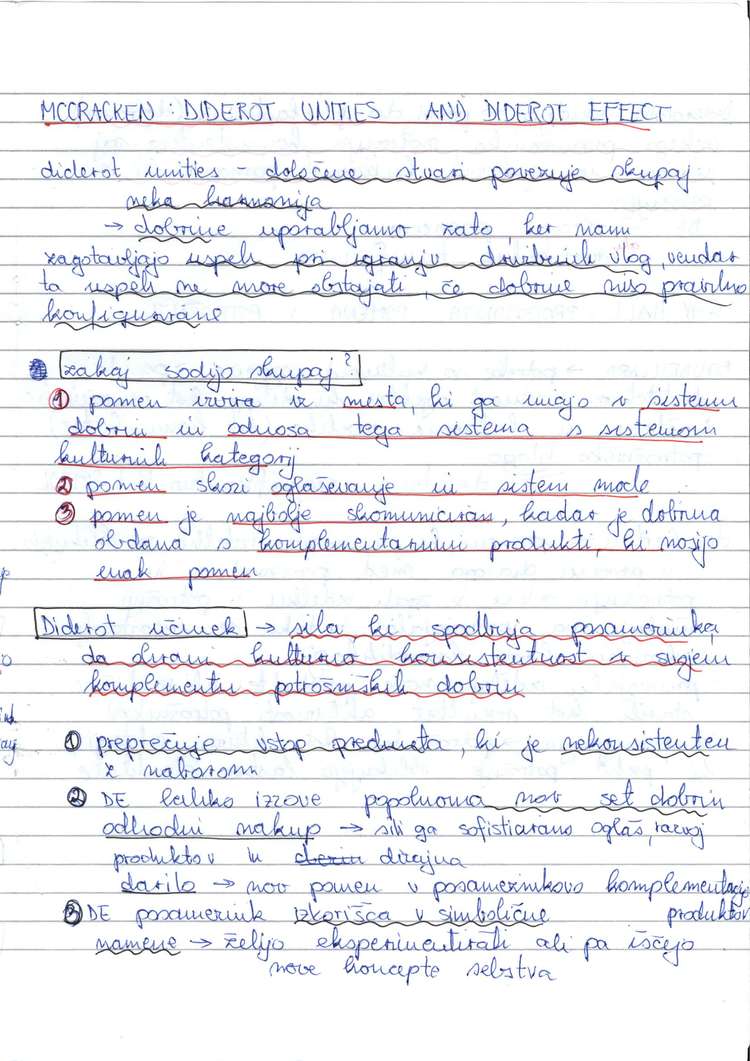 MCCRACKEN: DIDEROT UNITIES AND DIDEROT EFFECT
diderot unities - določene stvari povezuje skupaj
neka harmonija
→ dobrine uporabljamo zato, ker nam
zagotavljajo uspeh pri igranju družbenih vlog, vendar
ta uspeh ne more obstajati, če dobrine niso pravilno
konfigurirane
zakaj sodijo skupaj?
① pomen izvira iz mesta, ki ga imajo v sistemu
dobrin in odnosa tega sistema s sistemom
kulturnih kategorij
② pomen skozi oglaševanje in sistem mode
③ pomen je najbolje skomuniciran, kadar je dobrina
obdana s komplementarnimi produkti, ki nosijo
enak pomen
Diderot učinek → sila, ki spodbuja posameznika,
da ohrani kulturno konsistentnost v svojem
komplementu potrošniških dobrin
① preprečuje vstop predmeta, ki je nekonsistenten
z naborom
② DE lahko izzove popolnoma nov set dobrin
odhodni nakup → sili ga sofisticirano oglaš, razvoj
produktov in dizajna
darilo → nov pomen v posameznikovo komplementacijo
produktov
③ DE posameznik izkorišča v simbolične
namene → želijo eksperimentirati ali pa iščejo
nove koncepte sebstva